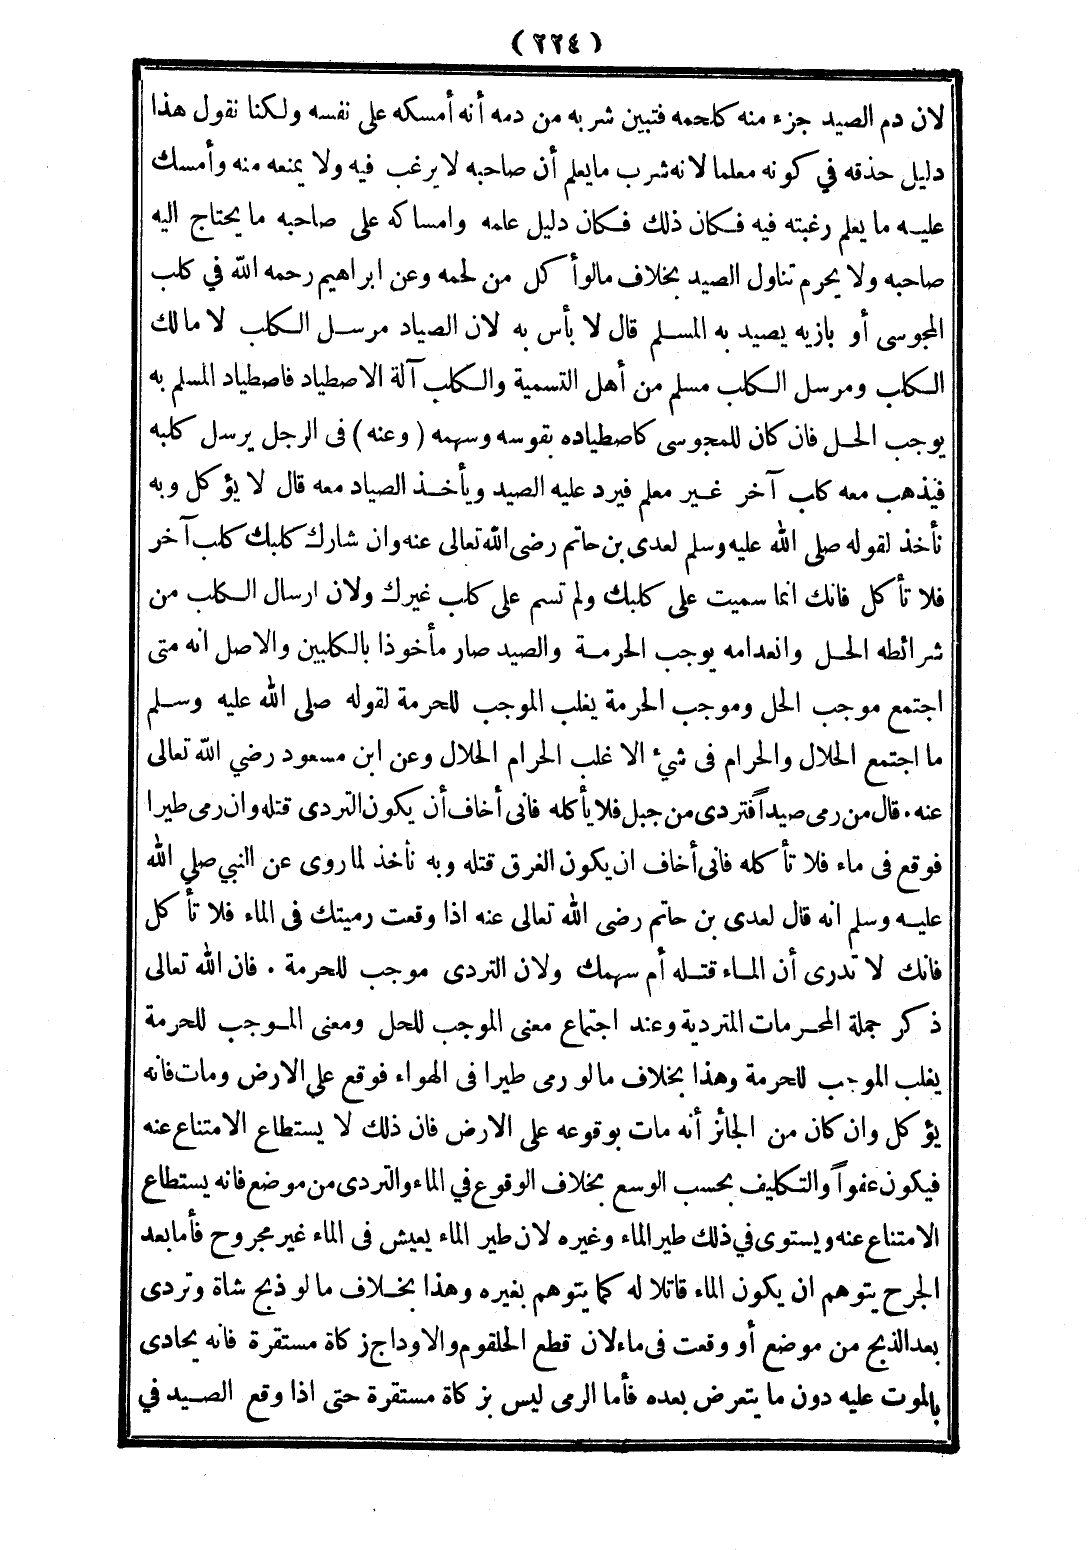 (٢٢٤)
لان دم الصيد جزء منه كلحمه فتبين شربه من دمه أنه أمسكه على نفسه ولكنا نقول هذا
دليل حذقه في كونه معلما لانه شرب ما يعلم أن صاحبه لا يرغب فيه ولا يمنعه منه وأمسك
عليه ما يعلم رغبته فيه فكان ذلك فكان دليل علمه وامساكه على صاحبه ما يحتاج اليه
صاحبه ولا يحرم تناول الصيد بخلاف مالو أكل من لحمه وعن ابراهيم رحمه الله في كلب
المجوسى أو بازيه يصيد به المسلم قال لا بأس به لان الصياد مرسل الكلب لا مالك
الكلب ومرسل الكلب مسلم من أهل التسمية والكلب آلة الاصطياد فاصطياد المسلم به
يوجب الحل فان كان للمجوسى كاصطياده بقوسه وسهمه (وعنه) فى الرجل يرسل كلبه
فيذهب معه كلب آخر غير معلم فيرد عليه الصيد ويأخذ الصياد معه قال لا يؤكل وبه
نأخذ لقوله صلى الله عليه وسلم لعدى بن حاتم رضى الله تعالى عنه وان شارك كلبك كلب آخر
فلا تأكل فانك انما سميت على كلبك ولم تسم على كلب غيرك ولان ارسال الكلب من
شرائطه الحل وانعدامه يوجب الحرمة والصيد صار مأخوذا بالكلبين والاصل انه متى
اجتمع موجب الحل وموجب الحرمة يغلب الموجب للحرمة لقوله صلى الله عليه وسلم
ما اجتمع الحلال والحرام فى شئ الا غلب الحرام الحلال وعن ابن مسعود رضي الله تعالى
عنه . قال من رمى صيداً فتردى من جبل فلا يأكله فانى أخاف أن يكون التردى قتله وان رمى طيرا
فوقع فى ماء فلا تأكله فانى أخاف ان يكون الغرق قتله وبه نأخذ لما روى عن النبي صلي الله
عليه وسلم انه قال لعدى بن حاتم رضى الله تعالى عنه اذا وقعت رميتك فى الماء فلا تأكل
فانك لا تدرى أن الماء قتله أم سهمك ولان التردى موجب للحرمة . فان الله تعالى
ذكر جملة المحرمات المتردية وعند اجتماع معنى الموجب للحل ومعنى الموجب للحرمة
يغلب الموجب للحرمة وهذا بخلاف مالو رمى طيرا فى الهواء فوقع على الارض ومات فانه
يؤكل وان كان من الجائز أنه مات بوقوعه على الارض فان ذلك لا يستطاع الامتناع عنه
فيكون عفواً والتكليف بحسب الوسع بخلاف الوقوع في الماء والتردى من موضع فانه يستطاع
الامتناع عنه ويستوى في ذلك طير الماء وغيره لان طير الماء يعيش فى الماء غير مجروح فأما بعد
الجرح يتوهم ان يكون الماء قاتلا له كما يتوهم بغيره وهذا بخلاف ما لو ذبح شاة وتردى
بعد الذبح من موضع أو وقعت فى ماء لان قطع الحلقوم والاوداج زكاة مستقرة فانه يحادى
بالموت عليه دون ما يتعرض بعده فأما الرمى ليس بزكاة مستقرة حتى اذا وقع الصيد في